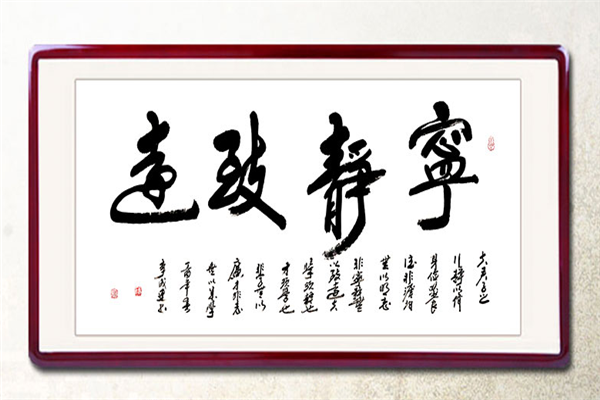 寧靜致遠
夫君子之
行靜以修
身儉以養
德非澹泊
無以明志
非寧靜無
以致遠夫
學須靜也
才須學也
非學無以
廣才非志
無以成學